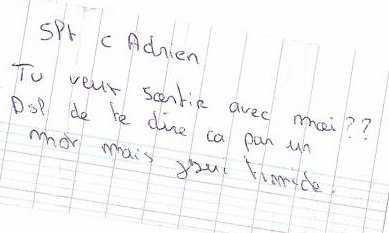 Slt c Adrien
Tu veux sortir avec moi??
Dsl de te dire ca par un
mot mais jsui timide.